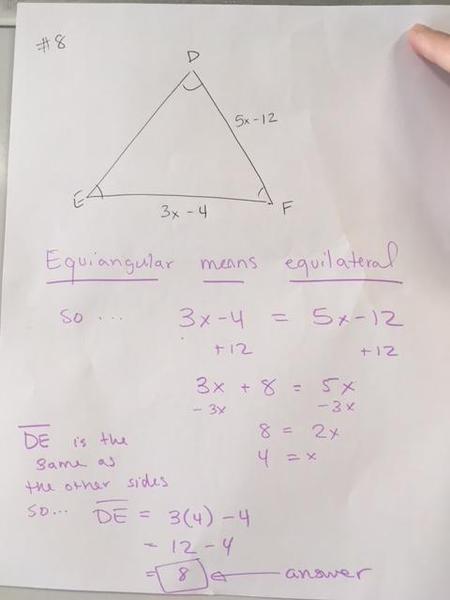 #8
D
5x-12
E
F
3x - 4
Equiangular means equilateral
so ... 3x-4 = 5x-12
+12 +12
3x + 8 = 5x
-3x -3x
8 = 2x
4 = x
DE is the
same as
the other sides
so... DE = 3(4) - 4
= 12 - 4
= 8 ← answer